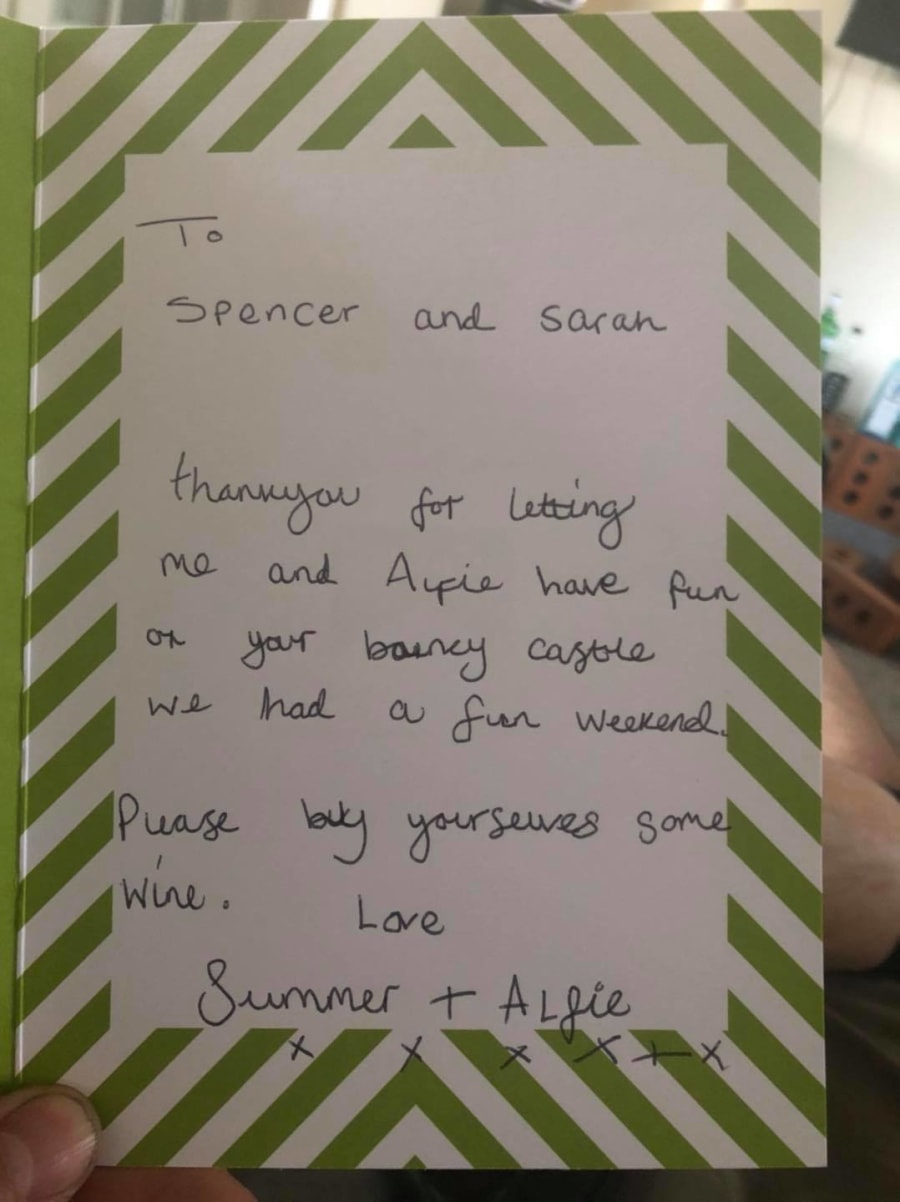 To
Spencer and Sarah
thankyou for letting
me and Alfie have fun
on your bouncy castle
we had a fun weekend.
Please buy yourselves some
wine.
Love
Summer + Alfie
x x x x x x